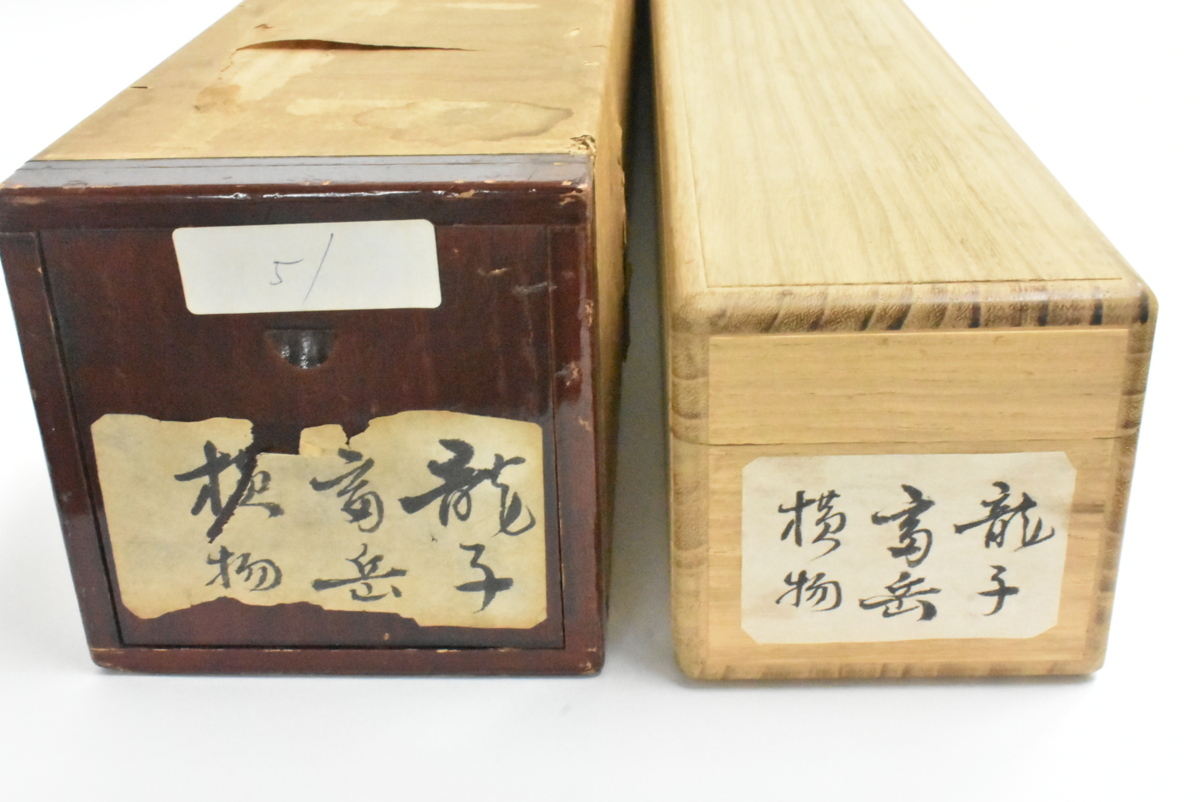 51
龍子
富岳
横物
龍子
富岳
横物